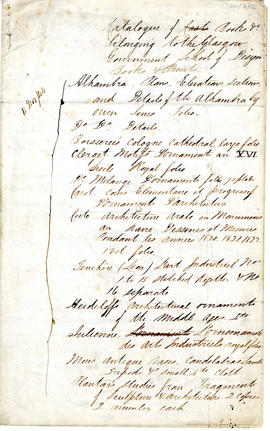 Catalogue of Book &c
belonging to the Glasgow
Government School of Design
Books
Alhambra Plans, Elevation, sections
and Details of the Alhambra by
owen Jones folio.
Do Do Details.
cologne cathedral large folio
Clerget Motifs Dornamente au XVI
Siecle Royal folio
Do Melange Dornaments folio
cours Elementaire et progressif
Dornament Darchitecture
architecture arabe ou Monumens
du Caire Dessines et Mesures
Pendant les annees 1820. 1821. 1822.
folio
Art Industriel No
1 to 15 stitched together & No
16 separate
Heideloff architectural ornaments
of the Middle Age
Julienne Lornemaniste
des arts Industriels royal folio
Moses antique vases, Candelabra, Lamps
Tripods &c small cloth
Plantar Studies from Fragments
of Sculpture & architecture 2 copies
2 number each